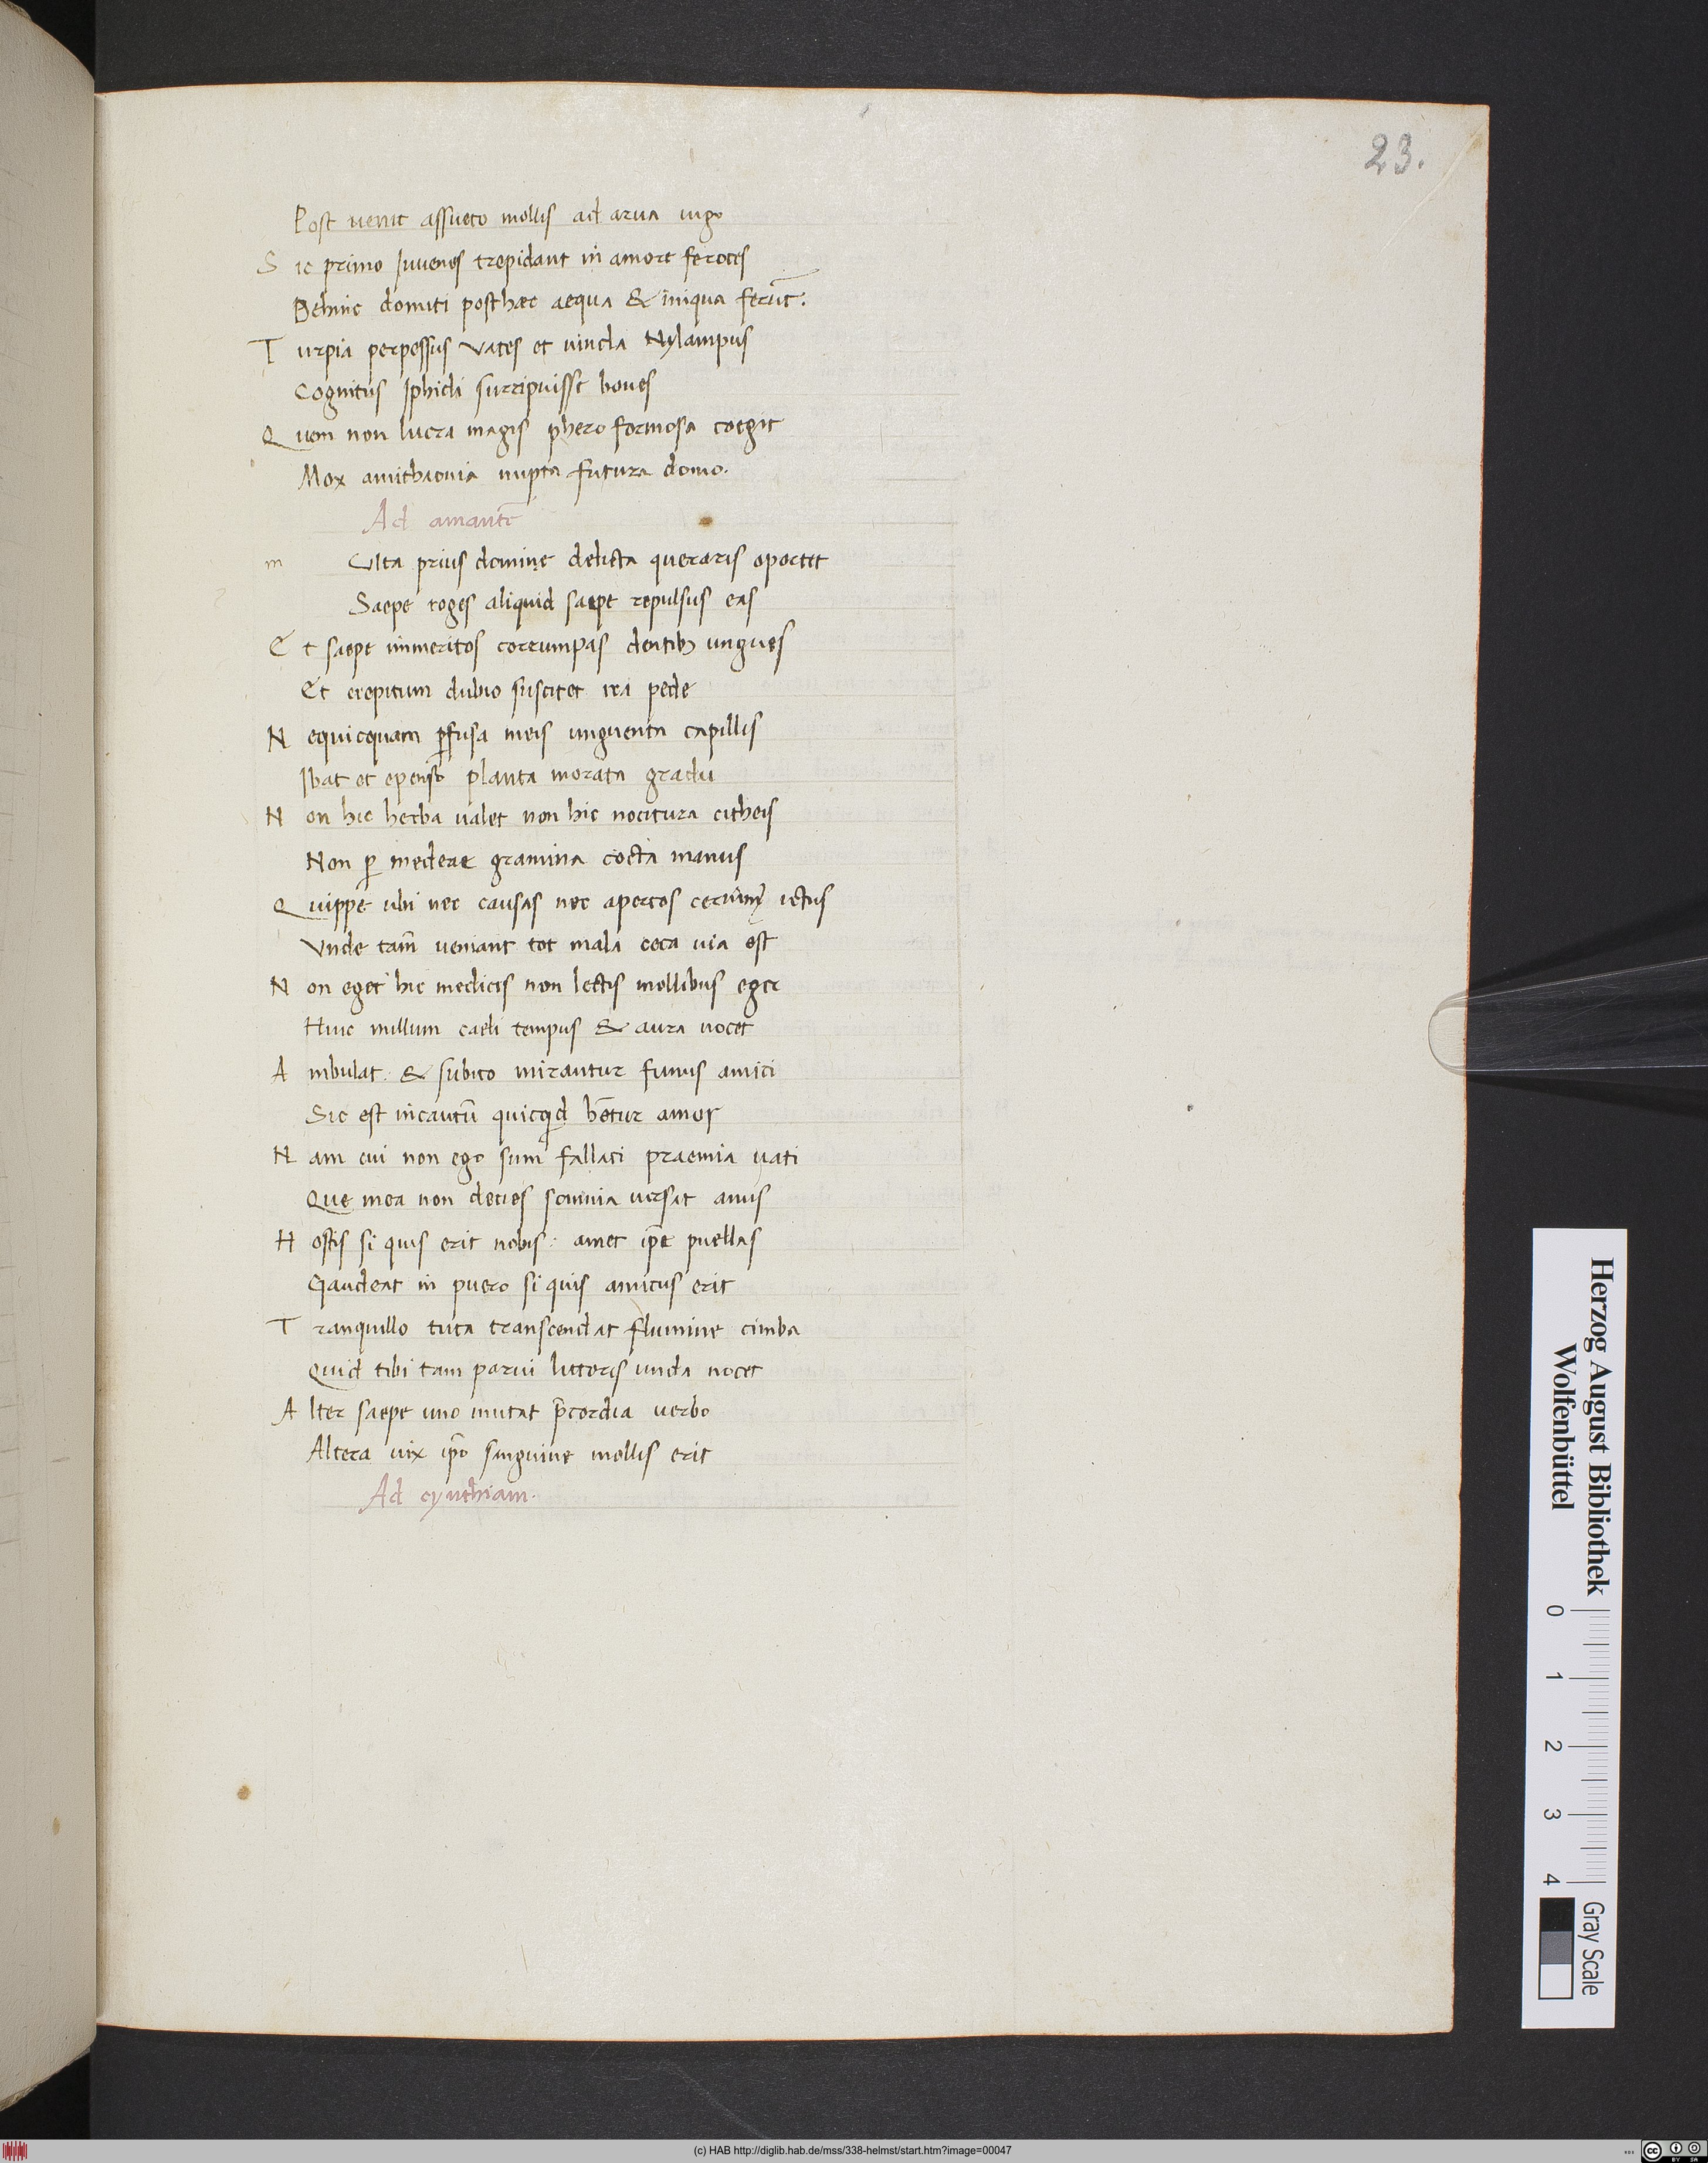 23.
Post uenit assueto mollis ad arua iugo
S ic primo Iuvenes trepidant in amore feroces
Dehinc domiti posthac aequa & iniqua ferūt.
T urpia perpessus Vates et uincla Nylampus
Cognitus Iphicli surripuisse boues
Q uem non lucra magis phero formosa coegit
Mox amithaonia nupta futura domo.
Ad amantē
m Vlta prius domine delicta queraris oportet
Saepe roges aliquid saepe repulsus eas
E t saepe immeritos corrumpas dentibꝫ ungues
Et crepitum dubio suscitet ira pede
N equicquam ꝑfusa meis unguenta capillis
Ibat et epenso planta morata gradu
N on hic herba ualet non hic nocitura citheis
Non ꝑ medeae gramina cocta manus
Q uippe ubi nec causas nec apertos cernimꝰ ictus
Vnde tam̄ ueniant tot mala ceca uia est
N on eget hic medicis non lectis mollibus eger
Huic nullum caeli tempus & aura nocet
A mbulat. & subito mirantur funus amici
Sic est incautū quicqd b̄etur amor
N am cui non ego sum fallaci praemia uati
Que mea non decies somnia uersat anus
H ostis si quis erit nobis: amet ip̄e puellas
Gaudeat in puero si quis amicus erit
T ranquillo tuta transcendat flumine cimba
Quid tibi tam parui littoris unda nocet
A lter saepe uno mutat p̄cordia uerbo
Altera uix ip̄o sanguine mollis erit
Ad cynthiam.
Herzog August Bibliothek
Wolfenbüttel
0 1 2 3 4
Gray Scale
(c) HAB http://diglib.hab.de/mss/338-helmst/start.htm?image=00047